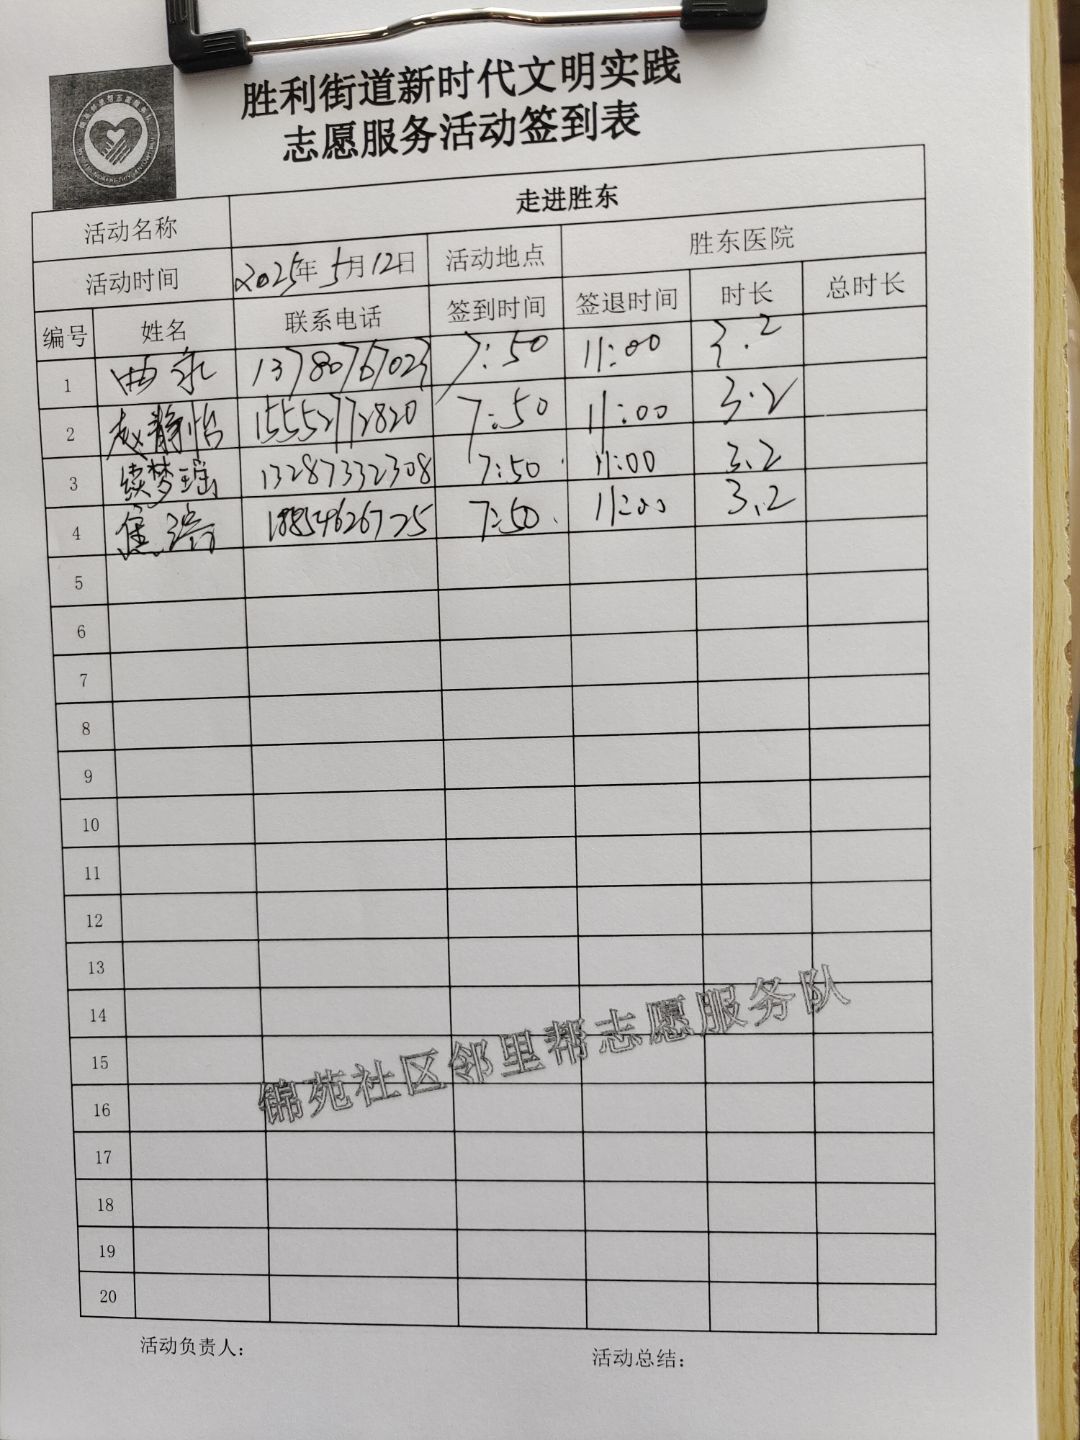 胜利街道新时代文明实践
志愿服务活动签到表
活动名称 走进胜东
活动时间 2025年5月12日 活动地点 胜东医院
编号 姓名 联系电话 签到时间 签退时间 时长 总时长
1 曲永 13780767023 7:50 11:00 3.2
2 赵静怡 15552772820 7:50 11:00 3.2
3 续梦瑶 13287332308 7:50 11:00 3.2
4 焦 18854626725 7:50 11:00 3.2
5
6
7
8
9
10
11
12
13
14
15
16
17
18
19
20
锦苑社区邻里帮志愿服务队
活动负责人：
活动总结：